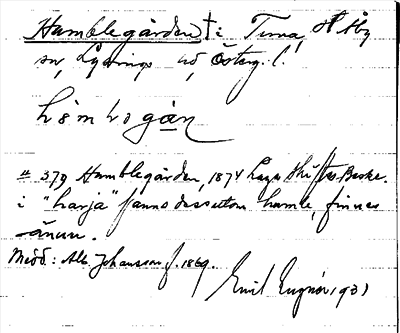 Humblegården † i Turna, St Åby
sn, Lysings hd, Österg. l.
hömbogän
# 379 Humblegården, 1874 Laga skiftes Beskr.
i "harja" fanns dessutom humle, finnes
ännu.
Medd: Alb. Johansson f. 1869.
Emil Lugnér 1931